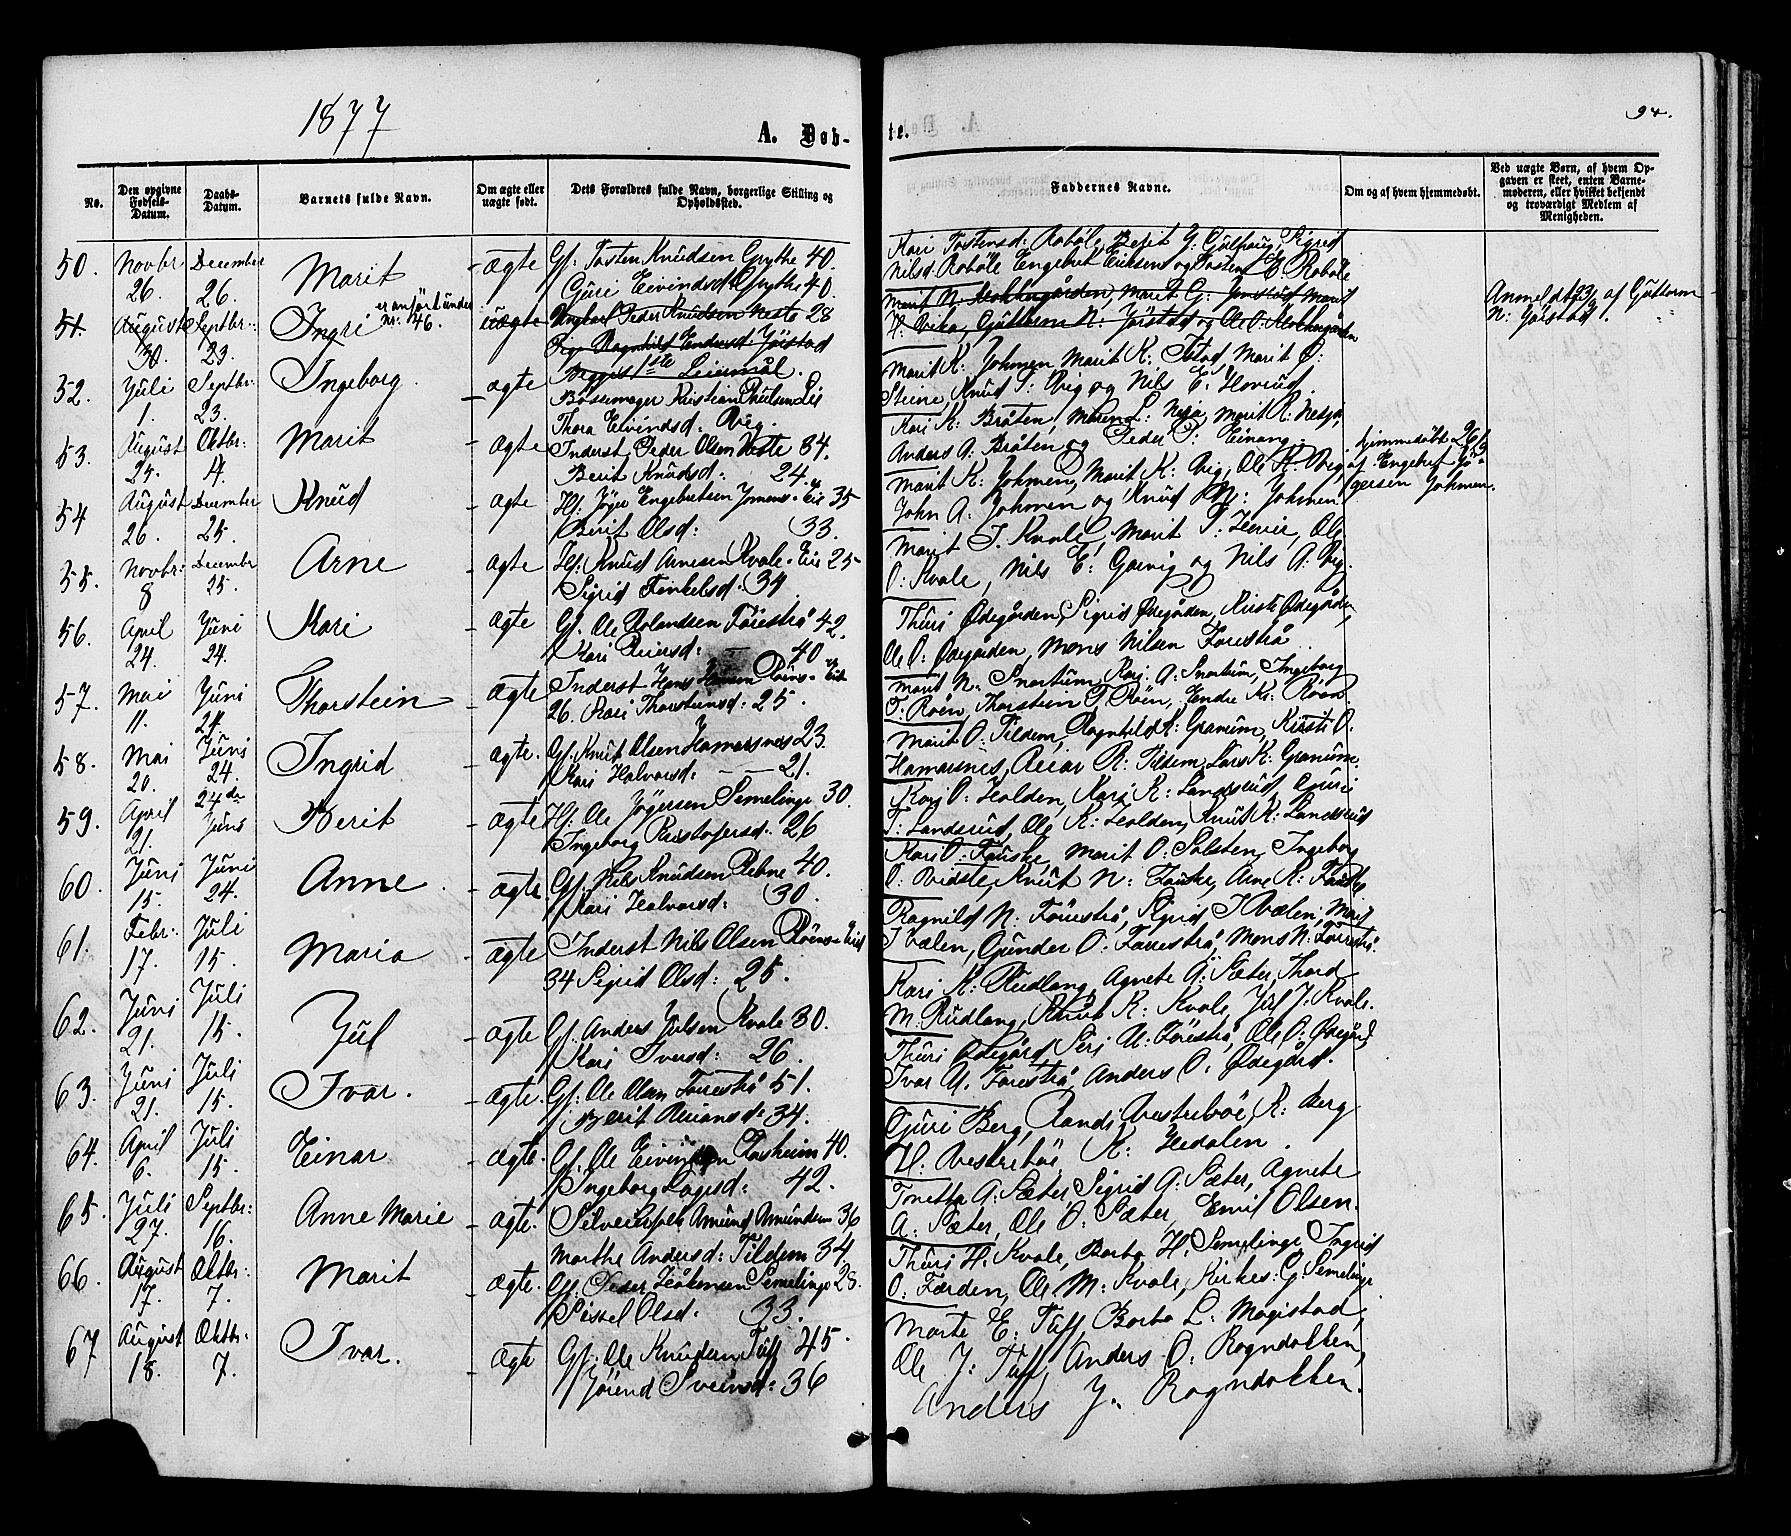 1877
A. Døb-
te.
94.
No.
Den opgivne Fødsels-Datum.
Daabs-Datum.
Barnets fulde Navn.
Om ægte eller uægte født.
Dets Forældres fulde Navn, borgerlige Stilling og Opholdssted.
Faddernes Navne.
Om og af hvem hjemmedøbt.
Ved uægte Børn, af hvem Opgaven er skeet, enten Barnemoderen, eller hvilket bekjendt og troværdigt Medlem af Menigheden.
50. Novbr 26. December 26. Marit - ægte Gf. Tosten Knudsen Grythe 40.
Guri Eivindsd: Grythe 40.
Kari Tostensd: Robøle, Berit G: Gjølhaug, Sigrid
Nilsd: Robøle Engebret Eriksen og Tosten E. Robøle
51. August 30. Septbr: 23. Ingri er anført under nr: 46. uægte Ungkarl Peder Knudsen Neste 28
Pige Ragnhild Endersd: Jørstad
Begges 1ste Leiermål.
Marit N: Molkkegården, Marit G: Jørstad Marit
H. Vika, Guttorm N: Jørstad og Ole O: Molkkegården
Anmeldt 23/9 af Guttorm
N: Jørstad.
52. Juli 1. Septbr: 23. Ingeborg - ægte
Bøssemager Kristian Poulsen Lie
Thora Eivindsd: Qvig.
Marit K: Johmen, Marit K: Istad Marit O:
Steine, Knud I: Qvig og Nils E: Hovrud.
53. August 24. Oktbr: 4. Marit - ægte Inderst, Peder Olsen Neste 34.
Berit Knudsd: 24.
Kari K: Bråten, Maren L: Neja, Marit R: Nesja,
Anders A: Bråten og Peder P: Einang.
54 August 26. December 25. Knud - ægte Hf. Jøger Engebretsen Johmens-Eie 35
Berit Olsd: 33.
Marit K: Johmen, Marit K: Qvig, Ole K: Qvig,
John A: Johmen og Knud N: Johmen
hjemmedøbt 26/8
af Engebret Jø-
gersen Johmen.
55. Novbr: 8 December 25. Arne - ægte Hf: Knud Arnesen Kvale-Eie 25
Sigrid Finkelsd: 34
Marit T. Kvale, Marit T: Lerrie, Ole
O: Kvale, Nils E: Garvig og Nils A: Qvig.
56. April 24. Juni 24. Kari - ægte Gf. Ole Erlandsen Førestrå 42.
Kari Reiersd: — 40
Thuri Ødegården, Sigrid Ødegården, Kirsti Ødegården,
Ole O: Ødegården, Mons Nilsen Forestrå
57. Mai 11. Juni 24. Thorstein - ægte Inderst Hans Hansen Røens-Eie
26. Kari Thorstensd: 25.
Marit N: Snortum, Kari A: Snortum, Ingeborg
T. Røen, Thorstein T. Røen, Endre K: Røen
58. Mai 20. Juni 24. Ingrid - ægte. Gf. Knut Olsen Hamersnes 23.
Kari Halvorsd: — — 21.
Marit O: Tildem, Ragnhild K: Granum, Kirsti O.
Hamersnes, Reiar R: Tildem, Lars K: Granum
59. April 21. 24de Juni Berit - ægte Hf. Ole Jøgersen Semelinge 30.
Ingeborg Kristofersd: 26
Kari O: Holden, Kari K: Landsrud, Guri
T: Landsrud, Ole K: Holden, Knut K: Landsrud
60. Juni 15. Juni 24. Anne. - ægte Gf. Nils Knudsen Rebne 40.
Kari Halvorsd: 30.
Kari O. Fauske, Marit O: Solsten, Ingeborg
O: Vidste, Knut N: Fauske, Arne K: Fauske
61. Febr: 17. Juli 15. Maria - ægte Inderst Nils Olsen Røens-Eie
34 Sigrid Olsd: 25.
Ragnild N. Førestrå, Sigrid T Kvalen, Marit
T Kvalen, Gunder O. Forrestrå, Mons N: Forrestrå
62. Juni 21. Juli 15. Jul - ægte Gf. Anders Julsen Kvale 30.
Kari Iversd: 26.
Kari K: Rudlang, Agnete A: Sæter, Thord
M: Rudlang, Knut K: Kvale, Jul J: Kvale.
63. Juni 21. Juli 15. Ivar. - ægte. Gf. Ole Olsen Forrestrå 51.
Berit Reiarsd: 34.
Thuri Ødegård, Seri U: Førestrå, Ole O: Ødegård,
Ivar U. Forestrå, Anders O. Ødegård.
64. April 6. Juli 15. Einar - ægte. Gf. Ole Eivindsen Forsheim 40.
Ingeborg Lagesd: 42.
Guri Berg, Randi Vestrebøe, K: Berg
H: Vestrebøe, K: Hedalen.
65. Juli 27. Septbr: 16. Anne Marie - ægte. Selveierfolk Amund Amundsen 36
Marthe Andersd: Tildem 34
Inetta A: Sæter, Sigrid A: Sæter, Agnete
A: Sæter, Ole O: Sæter, Emil Olsen.
66. August 17. Oktbr: 7. Marit - ægte. Gf. Peder Håkensen Semelinge 28.
Sissel Olsd: 33.
Thuri H. Kvale, Barbo H. Semelinge Ingrid
O: Færden, Ole M: Kvale, Kirkes: G Semelinge
67 August 18. Oktbr: 7. Ivar. - ægte Gf: Ole Knudsen Tuff 45.
Jørend Sveinsd: 36
Marte E: Tuff, Barbo L: Magistad,
Ole J: Tuff, Anders O: Rogndokken,
Anders J. Rogndokken.